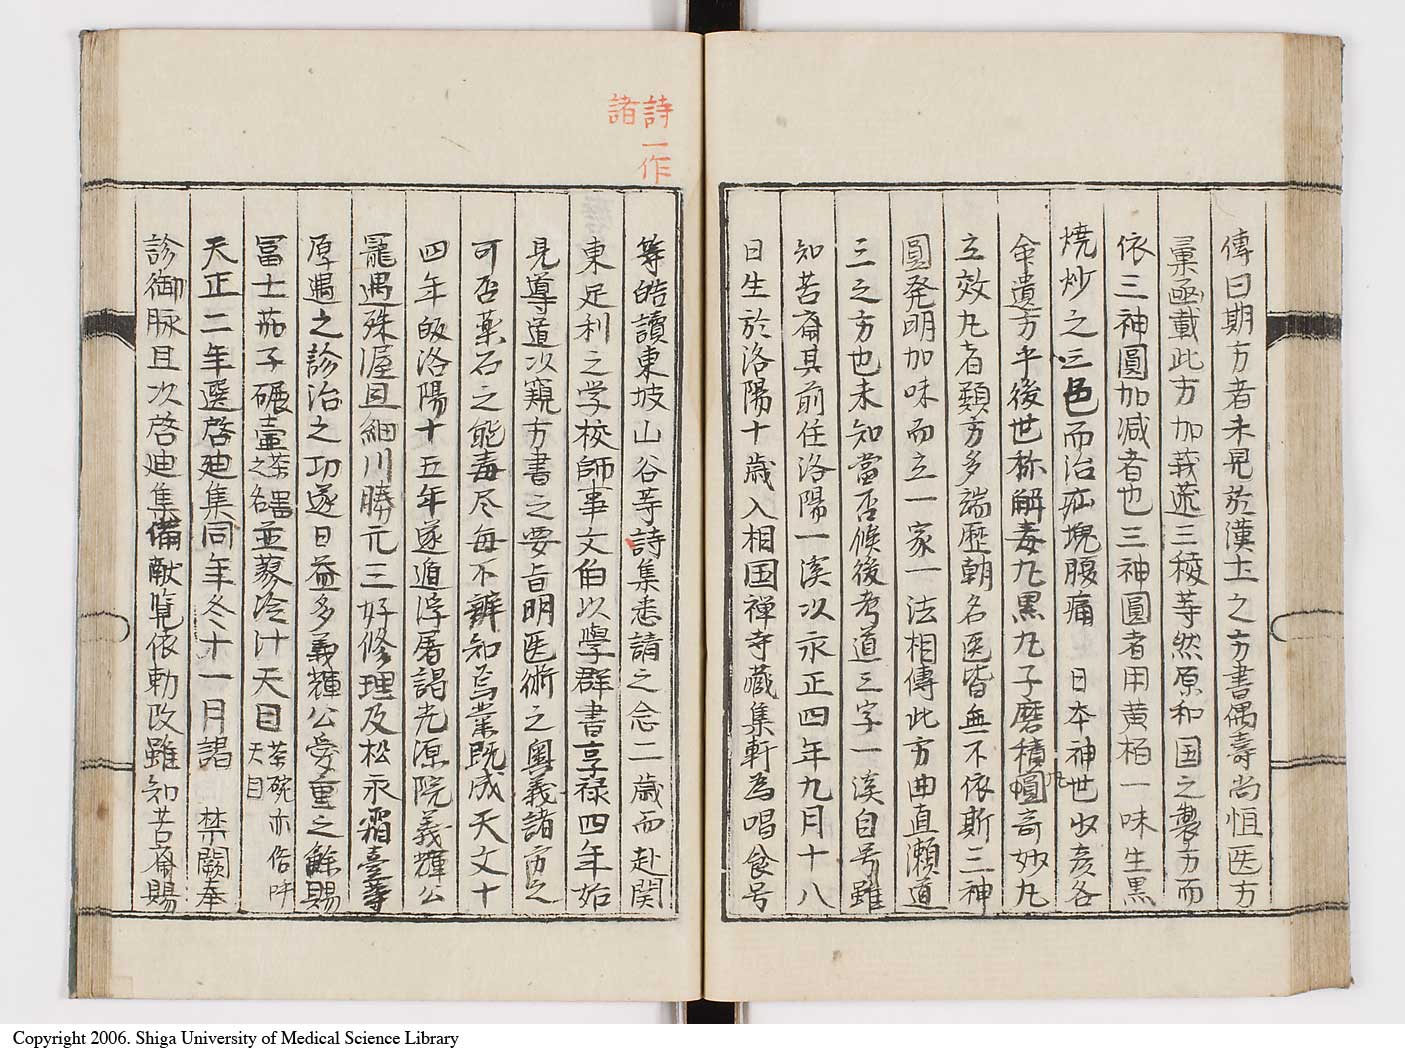 傳曰期方者未見於漢土之方書偶壽尚恒医方
彙函載此方加莪蒁三稜等然原和国之製方而
依三神圓加减者也三神圓者用黄栢一味生黒
焼炒之三色而治疝塊腹痛 日本神世少彦各
命遺方乎後世称解毒丸黒丸子磨積圓竒妙丸
丸
立效丸者類方多端歴朝名医皆無不依斯三神
圓発明加味而立一家一法相傳此方曲直瀬道
三之方也未知當否候後考道三字一渓自号雖
知苦齋其前任洛陽一渓以永正四年九月十八
日生於洛陽十歳入相国禅寺蔵集軒為唱食号
詩一作
諸
等皓讀東坡山谷等詩集悉請之念二歳而赴関
東足利之学校師事文伯以學群書享禄四年始
見導道以窺方書之要旨明医術之奥義諸方之
可否薬石之能毒尽毎不辨知焉業既成天文十
四年皈洛陽十五年遂遁浮屠謁光源院義輝公
寵遇殊渥且細川勝元三好修理及松永霜臺等
厚遇之診治之功遂日益多義輝公愛重之餘賜
冨士茄子碾壷茶之名器並蓼冷汁天目茶碗亦俗呼天目
天正二年選啓廸集同年冬十一月謁 禁闕奉
診御脉且次啓廸集備献覧依勅改雖知苦齋賜
Copyright 2006. Shiga University of Medical Science Library